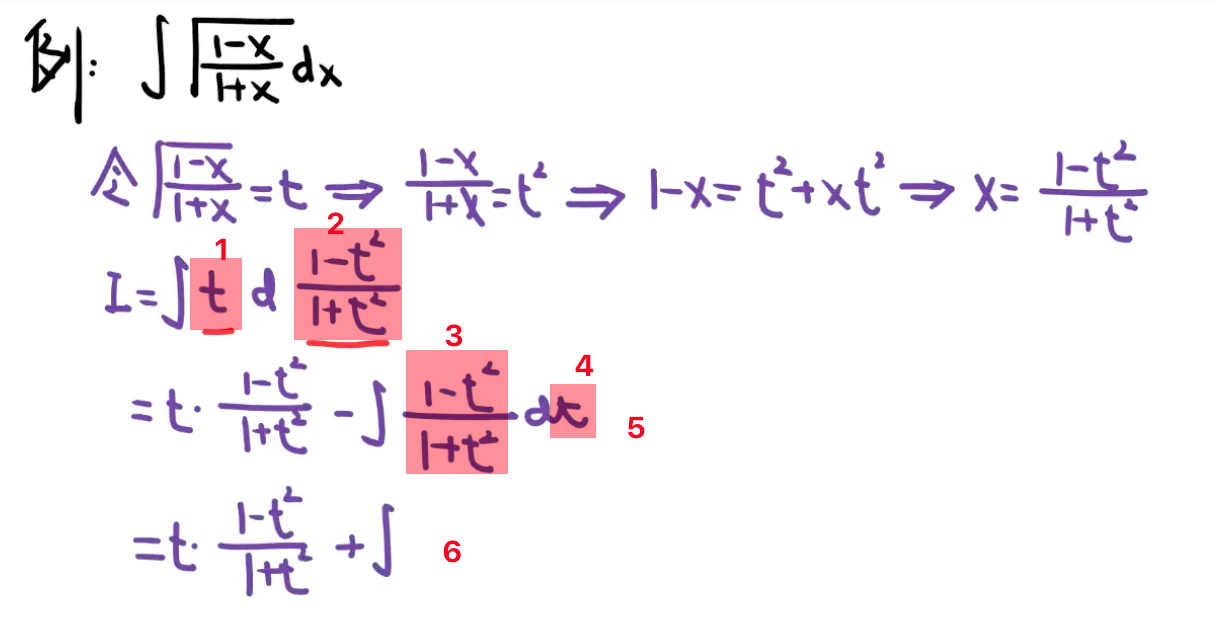 例: ∫√((1-x)/(1+x)) dx
令 √((1-x)/(1+x)) = t ⇒ (1-x)/(1+x) = t² ⇒ 1-x = t²+xt² ⇒ x = (1-t²)/(1+t²)
1 2
I = ∫ t d (1-t²)/(1+t²)
3 4
= t· (1-t²)/(1+t²) - ∫ (1-t²)/(1+t²) dt 5
= t· (1-t²)/(1+t²) + ∫ 6